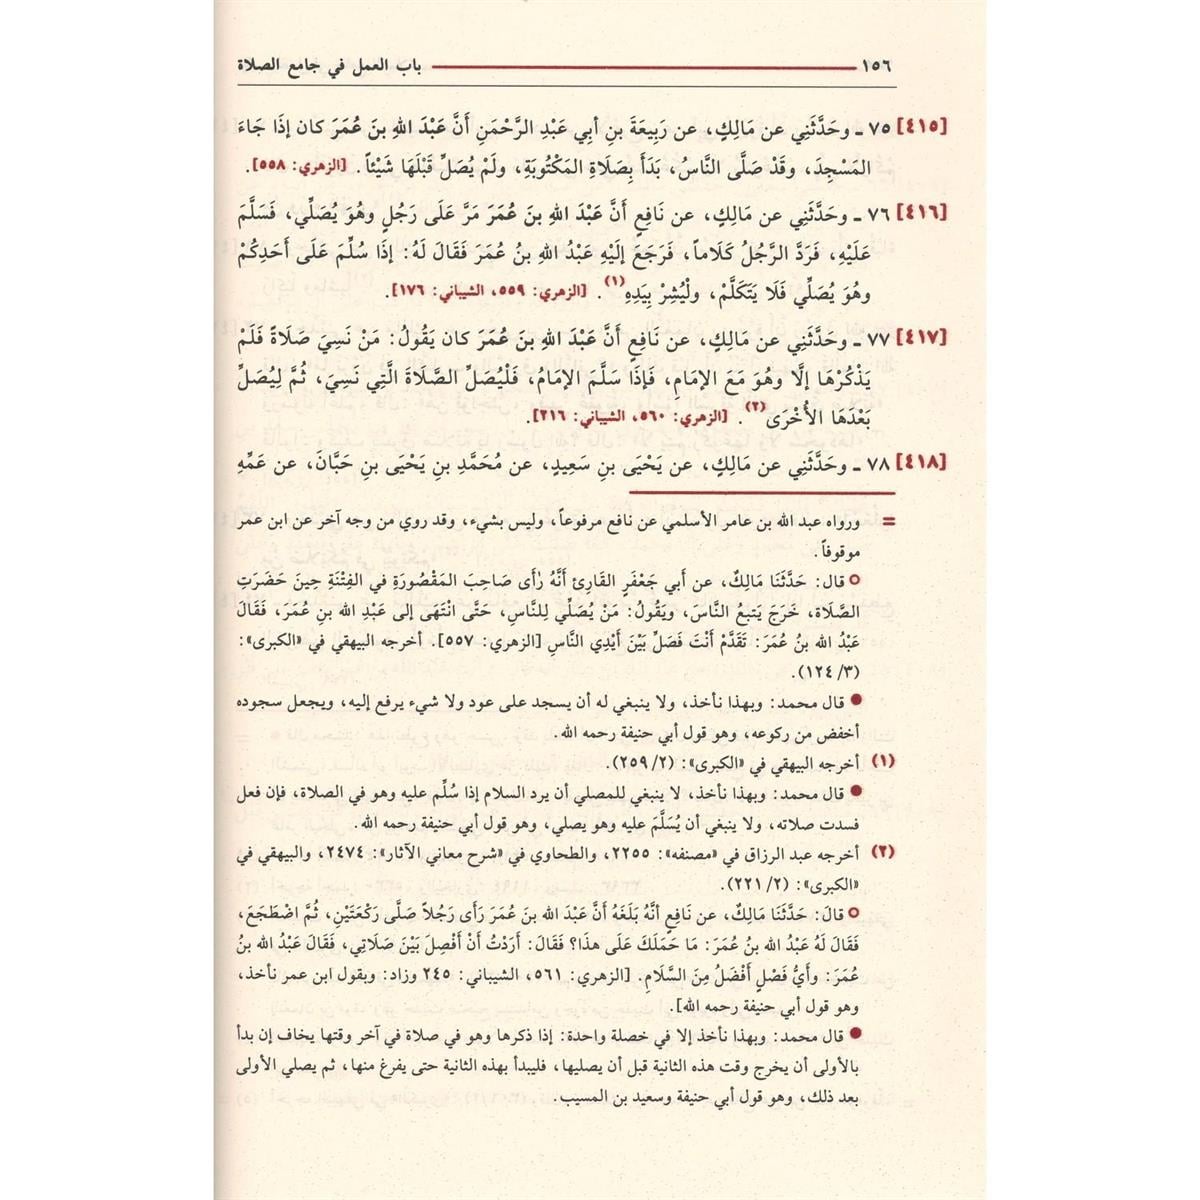 ١٥٦ باب العمل في جامع الصلاة
[٤١٥] ٧٥ ـ وحَدَّثَنِي عن مَالِكٍ، عن رَبِيعَةَ بنِ أبِي عَبْدِ الرَّحْمَنِ أنَّ عَبْدَ اللهِ بنَ عُمَرَ كان إذَا جَاءَ
المَسْجِدَ، وقَدْ صَلَّى النَّاسُ، بَدَأَ بِصَلَاةِ المَكْتُوبَةِ، ولَمْ يُصَلِّ قَبْلَهَا شَيْئاً. [الزهري: ٥٥٨].
[٤١٦] ٧٦ ـ وحَدَّثَنِي عن مَالِكٍ، عن نَافِعٍ أنَّ عَبْدَ اللهِ بنَ عُمَرَ مَرَّ عَلَى رَجُلٍ وهُوَ يُصَلِّي، فَسَلَّمَ
عَلَيْهِ، فَرَدَّ الرَّجُلُ كَلَاماً، فَرَجَعَ إلَيْهِ عَبْدُ اللهِ بنُ عُمَرَ فَقَالَ لَهُ: إذَا سُلِّمَ عَلَى أَحَدِكُمْ
وهُوَ يُصَلِّي فَلَا يَتَكَلَّمْ، ولْيُشِرْ بِيَدِهِ(١). [الزهري: ٥٥٩، الشيباني: ١٧٦].
[٤١٧] ٧٧ ـ وحَدَّثَنِي عن مَالِكٍ، عن نَافِعٍ أنَّ عَبْدَ اللهِ بنَ عُمَرَ كان يَقُولُ: مَنْ نَسِيَ صَلَاةً فَلَمْ
يَذْكُرْهَا إلَّا وهُوَ مَعَ الإمَامِ، فَإذَا سَلَّمَ الإمَامُ، فَلْيُصَلِّ الصَّلَاةَ الَّتِي نَسِيَ، ثُمَّ لِيُصَلِّ
بَعْدَهَا الأُخْرَى(٢). [الزهري: ٥٦٠، الشيباني: ٢١٦].
[٤١٨] ٧٨ ـ وحَدَّثَنِي عن مَالِكٍ، عن يَحْيَى بنِ سَعِيدٍ، عن مُحَمَّدِ بنِ يَحْيَى بنِ حَبَّانَ، عن عَمِّهِ
= ورواه عبد الله بن عامر الأسلمي عن نافع مرفوعاً، وليس بشيء، وقد روي من وجه آخر عن ابن عمر
موقوفاً.
○ قال: حَدَّثَنَا مَالِكٌ، عن أبي جَعْفَرٍ القَارِئ أنَّهُ رَأى صَاحِبَ المَقْصُورَةِ في الفِتْنَةِ حِينَ حَضَرَتِ
الصَّلَاة، خَرَجَ يَتبعُ النَّاسَ، ويَقُولُ: مَنْ يُصَلِّي لِلنَّاسِ، حَتَّى انْتَهَى إلى عَبْدِ الله بنِ عُمَرَ، فَقَالَ
عَبْدُ الله بنُ عُمَرَ: تَقَدَّمْ أنْتَ فَصَلِّ بَيْنَ أيْدِي النَّاسِ [الزهري: ٥٥٧]. أخرجه البيهقي في «الكبرى»:
(٣/ ١٢٤).
● قال محمد: وبهذا نأخذ، ولا ينبغي له أن يسجد على عود ولا شيء يرفع إليه، ويجعل سجوده
أخفض من ركوعه، وهو قول أبي حنيفة رحمه الله.
(١) أخرجه البيهقي في «الكبرى»: (٢/ ٢٥٩).
● قال محمد: وبهذا نأخذ، لا ينبغي للمصلي أن يرد السلام إذا سُلِّم عليه وهو في الصلاة، فإن فعل
فسدت صلاته، ولا ينبغي أن يُسَلَّمَ عليه وهو يصلي، وهو قول أبي حنيفة رحمه الله.
(٢) أخرجه عبد الرزاق في «مصنفه»: ٢٢٥٥، والطحاوي في «شرح معاني الآثار»: ٢٤٧٤، والبيهقي في
«الكبرى»: (٢/ ٢٢١).
○ قالَ: حَدَّثَنَا مَالِكٌ، عن نَافِعٍ أنَّهُ بَلَغَهُ أنَّ عَبْدَ الله بنَ عُمَرَ رَأى رَجُلاً صَلَّى رَكْعَتَيْنِ، ثُمَّ اضْطَجَعَ،
فَقَالَ لَهُ عَبْدُ الله بنُ عُمَرَ: مَا حَمَلَكَ عَلَى هذَا؟ فَقَالَ: أرَدْتُ أنْ أفْصِلَ بَيْنَ صَلَاتِي، فَقَالَ عَبْدُ الله بنُ
عُمَرَ: وأيُّ فَصْلٍ أفْضَلُ مِنَ السَّلَامِ. [الزهري: ٥٦١، الشيباني: ٢٤٥ وزاد: وبقول ابن عمر نأخذ،
وهو قول أبي حنيفة رحمه الله].
● قال محمد: وبهذا نأخذ إلا في خصلة واحدة: إذا ذكرها وهو في صلاة في آخر وقتها يخاف إن بدأ
بالأولى أن يخرج وقت هذه الثانية قبل أن يصليها، فليبدأ بهذه الثانية حتى يفرغ منها، ثم يصلي الأولى
بعد ذلك، وهو قول أبي حنيفة وسعيد بن المسيب.